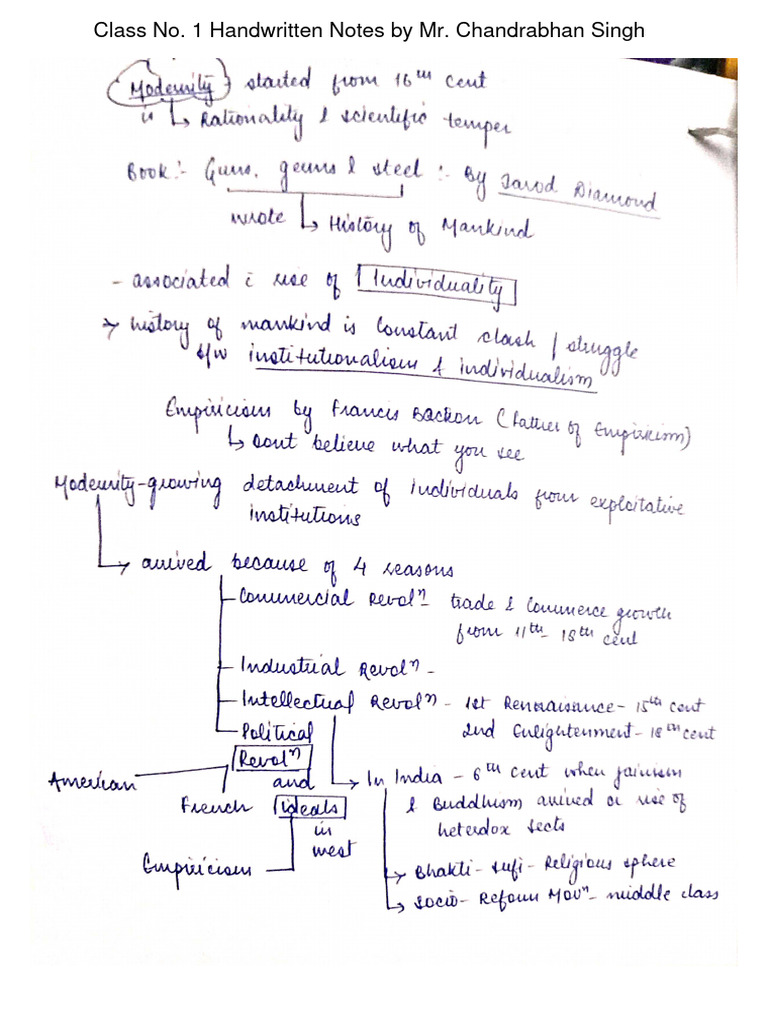 Class No. 1 Handwritten Notes by Mr. Chandrabhan Singh
Modernity → started from 16th cent
is ↳ Rationality & scientific temper
Book :- Guns, germs & steel :- By Jarod Diamond
wrote ↳ History of Mankind
- associated c rise of Individuality
→ history of mankind is constant clash / struggle
b/w institutionalism & individualism
Empiricism by Francis Backon (father of Empiricism)
↳ dont believe what you see
Modernity - growing detachment of individuals from exploitative
institutions
→ arrived because of 4 reasons
- Commercial Revolⁿ - trade & commerce growth
from 11th - 18th cent
- Industrial Revolⁿ -
- Intellectual Revolⁿ - 1st Rennaisance - 15th cent
2nd Enlightenment - 18th cent
- Political
Revolⁿ
American
French
and
ideals
in
west
Empiricism
↳ In India - 6th cent when jainism
& Buddhism arrived or rise of
heterdox sects
→ Bhakti - sufi - Religious sphere
→ socio - Reform Movⁿ - middle class